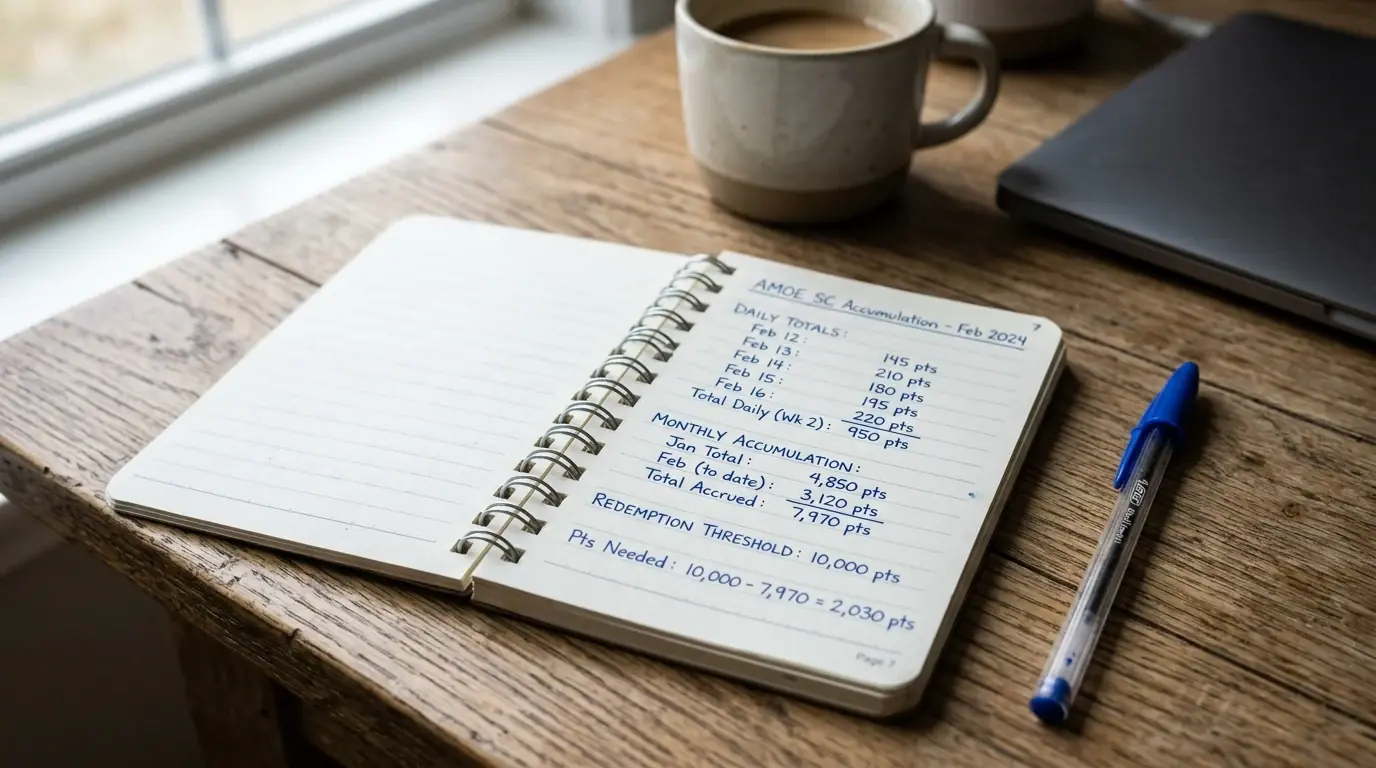 7
AMOE SC Accumulation - Feb 2024
DAILY TOTALS:
Feb 12: 145 pts
Feb 13: 210 pts
Feb 14: 180 pts
Feb 15: 195 pts
Feb 16: 220 pts
Total Daily (Wk 2): 950 pts
MONTHLY ACCUMULATION:
Jan Total: 4,850 pts
Feb (to date): 3,120 pts
Total Accrued: 7,970 pts
REDEMPTION THRESHOLD: 10,000 pts
Pts Needed: 10,000 - 7,970 = 2,030 pts
Page 7